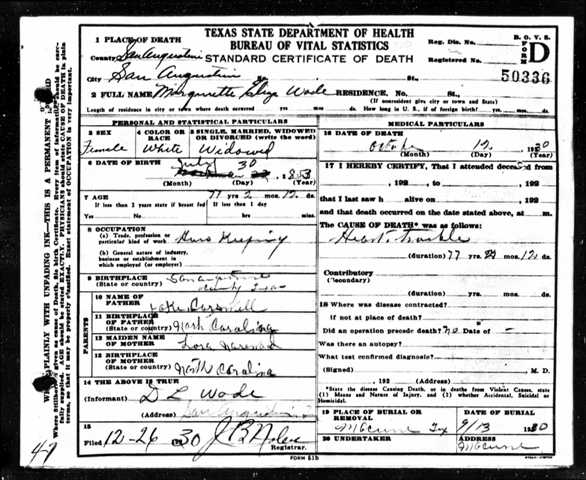 TEXAS STATE DEPARTMENT OF HEALTH
BUREAU OF VITAL STATISTICS
STANDARD CERTIFICATE OF DEATH
B. O. V. S.
FORM D
Reg. Dis. No.
Registered No.
50336
1 PLACE OF DEATH
County San Augustine
City San Augustine St.
2 FULL NAME Margurette Eliza Wade RESIDENCE. No. St.,
(If nonresident give city or town and State)
Length of residence in city or town where death occurred yrs. mos. ds. How long in U. S., if of foreign birth? yrs. mos. ds.
PERSONAL AND STATISTICAL PARTICULARS
3 SEX
Female
4 COLOR OR RACE
White
5 SINGLE, MARRIED, WIDOWED OR DIVORCED (write the word)
Widowed
6 DATE OF BIRTH
July 30 1853
(Month) (Day) (Year)
7 AGE 77 yrs 2 mos. 12 ds.
If less than 2 years state if breast fed
If less than 1 day
Yes No hrs. min.
8 OCCUPATION
(a) Trade, profession or particular kind of work House Keeping
(b) General nature of industry, business or establishment in which employed (or employer)
9 BIRTHPLACE
(State or country) San Augustine County Texas
PARENTS
10 NAME OF FATHER
11 BIRTHPLACE OF FATHER
(State or country) North Carolina
12 MAIDEN NAME OF MOTHER
13 BIRTHPLACE OF MOTHER
(State or country) North Carolina
14 THE ABOVE IS TRUE
(Informant) D L Wade
(Address) San Augustine
15
Filed 12-26 1930
Registrar.
MEDICAL PARTICULARS
16 DATE OF DEATH
12, 1930
(Month) (Day) (Year)
17 I HEREBY CERTIFY, That I attended deceased from
, 192 , to , 192
that I last saw h alive on , 192
and that death occurred on the date stated above, at m.
The CAUSE OF DEATH* was as follows:
Heart trouble
(duration) 77 yrs. 2 mos. 12 ds.
Contributory
(Secondary)
(duration) yrs. mos. ds.
18 Where was disease contracted?
if not at place of death?
Did an operation precede death? no Date of -
Was there an autopsy?
What test confirmed diagnosis?
(Signed) M. D.
, 192 (Address)
*State the disease Causing Death, or in deaths from Violent Causes, state (1) Means and Nature of Injury, and (2) whether Accidental, Suicidal or Homicidal.
19 PLACE OF BURIAL OR REMOVAL
McCune Tex
DATE OF BURIAL
9/13 1930
20 UNDERTAKER
ADDRESS
McCune
FORM 51B